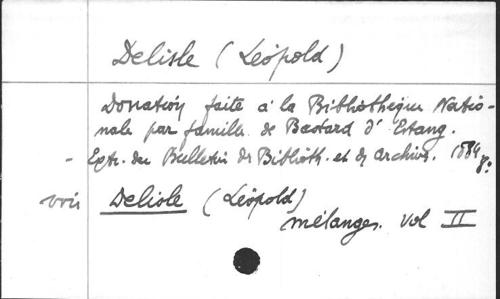 Delisle (Léopold)
Donation faite à la Bibliothèque Natio-
nale par famille de Bastard d'Estang.
- Extr. du Bulletin des Biblioth. et des archives. 1884 8º
voir Delisle (Léopold)
mélanges. vol II